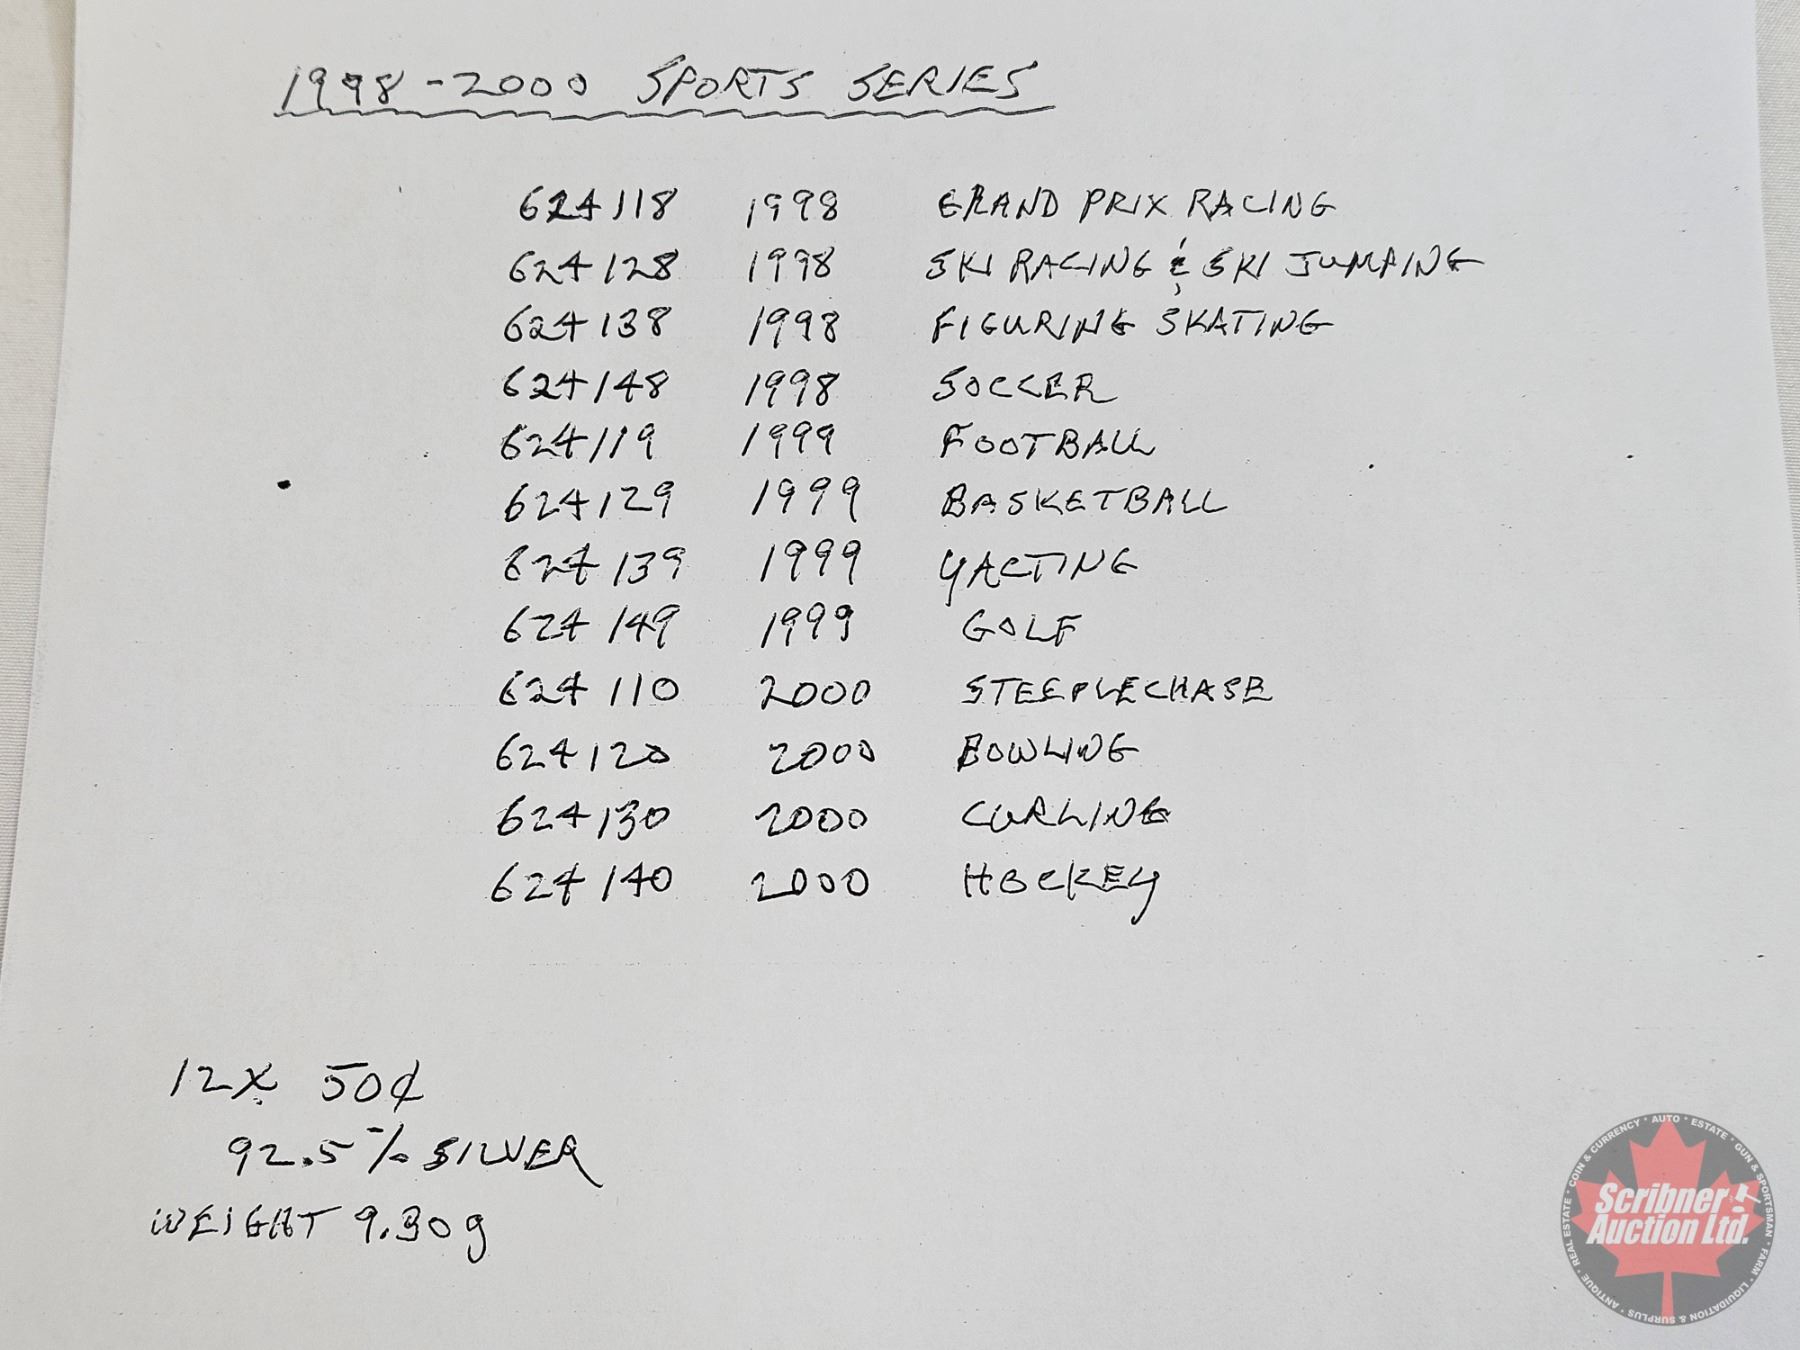 1998-2000 SPORTS SERIES
624118 1998 GRAND PRIX RACING
624128 1998 SKI RACING & SKI JUMPING
624138 1998 FIGURING SKATING
624148 1998 SOCCER
624119 1999 FOOTBALL
624129 1999 BASKETBALL
624139 1999 YACTING
624149 1999 GOLF
624110 2000 STEEPLECHASE
624120 2000 BOWLING
624130 2000 CURLING
624140 2000 HOCKEY
12X 50¢
92.5% SILVER
WEIGHT 9.30g
COIN & CURRENCY • AUTO • ESTATE • GUN & SPORTSMAN • FARM • LIQUIDATION & SURPLUS • ANTIQUE • REAL ESTATE •
Scribner
Auction Ltd.